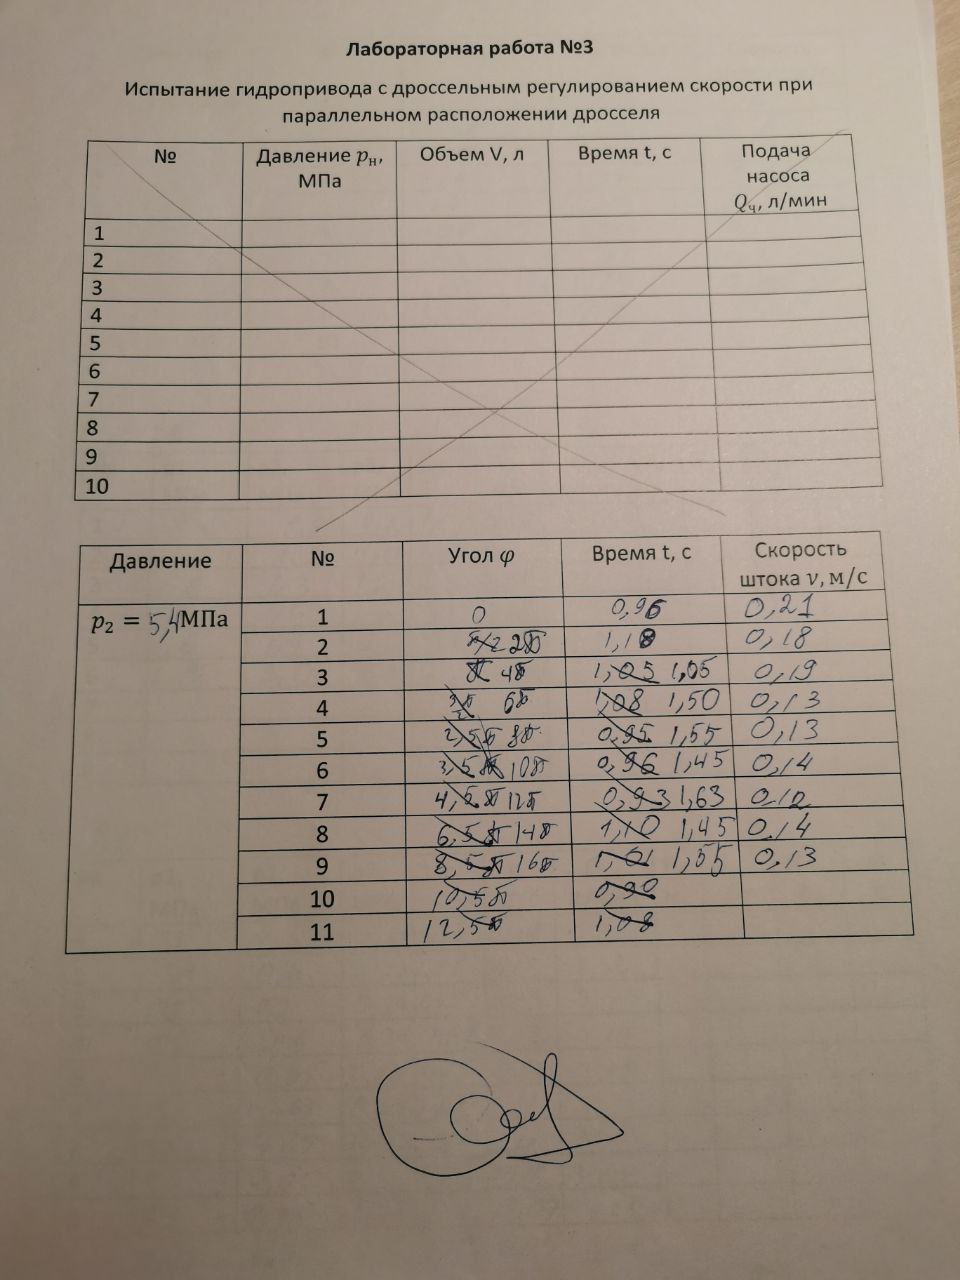 Лабораторная работа №3
Испытание гидропривода с дроссельным регулированием скорости при
параллельном расположении дросселя
№ Давление pн, МПа Объем V, л Время t, с Подача насоса Qч, л/мин
1
2
3
4
5
6
7
8
9
10
Давление № Угол φ Время t, с Скорость штока v, м/с
p2 = 5,4 МПа 1 0 0,96 0,21
2 2π 1,18 0,18
3 4π 1,05 1,05 0,19
4 6π 1,08 1,50 0,13
5 2,5π 8π 0,95 1,55 0,13
6 3,5π 10π 0,96 1,45 0,14
7 4,5π 12π 0,93 1,63 0,12
8 6,5π 14π 1,10 1,45 0,14
9 8,5π 16π 1,01 1,55 0,13
10 10,5π 0,90
11 12,5π 1,08